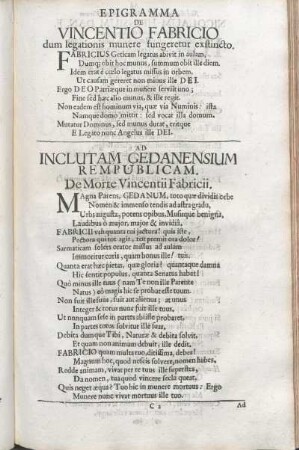 EPIGRAMMA
DE
VINCENTIO FABRICIO
dum legationis munere fungeretur exstincto.
FABRICIUS Geticam legatus abivit in aulam,
Dumq; obit hoc munus, summum obit ille diem.
Idem erat è cœlo legatus missus in orbem.
Ut causam gereret non minus ille DEI.
Ergo DEO Patriæque in munere servit uno;
Fine sed hæc alio munus, & ille regit.
Non eadem est hominum vis, quæ vis Numinis: ista
Namque domo mittit: sed vocat illa domum.
Mutatur Dominus, sed munus durat, eritque
E Legato nunc Angelus ille DEI.
AD
INCLUTAM GEDANENSIUM
REMPUBLICAM.
De Morte Vincentii Fabricii.
MAgna Parens, GEDANUM, toto quæ dividis orbe
Nomen & immenso tendis ad astra gradu,
Urbs augusta, potens opibus, Musisque benigna,
Laudibus ô major, major & invidia.
FABRICII vah quanta tui jactura! quis iste,
Pectora qui tot agit, tot premit ora dolor?
Sarmaticam solers orator missus ad aulam
Immoritur curis, quantu bonus ille! tuis.
Quanta erat hæc pietas, quæ gloria! quantaque damna
Hic sentit populus, quanta Senatus habet!
Quo minus ille tuus (nam Te non ille Parente
Natus) eô magis hic se probat esse tuum.
Non fuit ille suus, fuit aut alienus; at unus
Integer & totus nunc fuit ille tuus.
Ut nunquam sese in partes abiisse probaret,
In partes totus solvitur ille suas.
Debita dumque Tibi, Naturæ & debita solvit.
Et quam non animam debuit; ille dedit.
FABRICIO quam multa tuo ditissima, debes!
Magnum hoc, quod nescis solvere, nomen habes,
Redde animam, vivat per te tuus ille superstes.
Da nomen, tuaque id vincere secla queat.
Quis neget æqua? Tuo hic in munere mortuus: Ergo
Munere nunc vivat mortuus ille tuo.
C 2
Ad